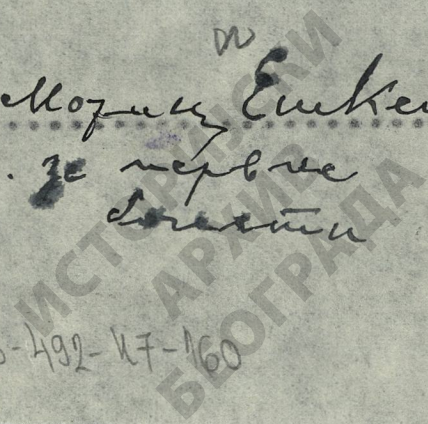 Мориц Ешкен
за нервне
болести
-492-К7-160
ИСТОРИЈСКИ
АРХИВ
БЕОГРАДА